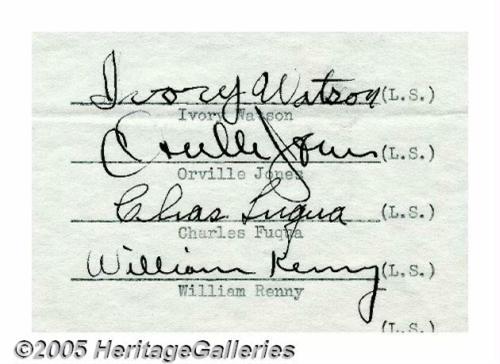 Ivory Watson (L.S.)
Ivory Watson
Orville Jones (L.S.)
Orville Jones
Chas Fuqua (L.S.)
Charles Fuqua
William Kenny (L.S.)
William Renny
(L.S.)
©2005 HeritageGalleries